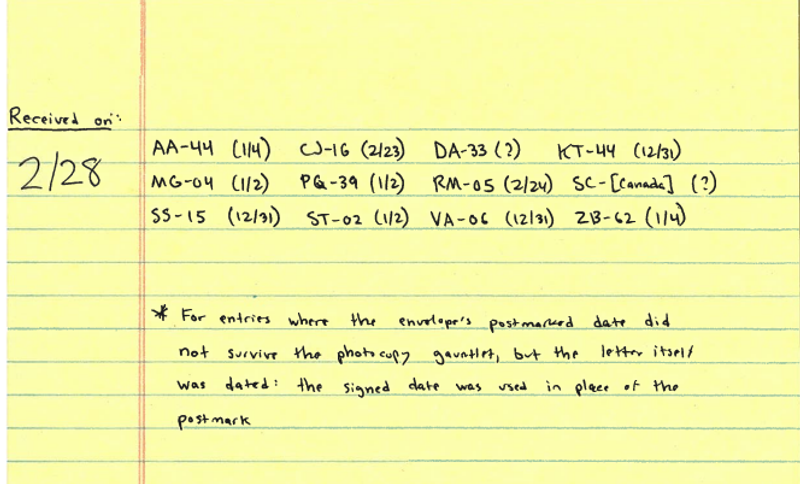 Received on:
2/28
AA-44 (1/4) CJ-16 (2/23) DA-33 (?) KT-44 (12/31)
MG-04 (1/2) PQ-39 (1/2) RM-05 (2/24) SC-[Canada] (?)
SS-15 (12/31) ST-02 (1/2) VA-06 (12/31) ZB-62 (1/4)
* For entries where the envelope's postmarked date did
not survive the photocopy gauntlet, but the letter itself
was dated: the signed date was used in place of the
postmark